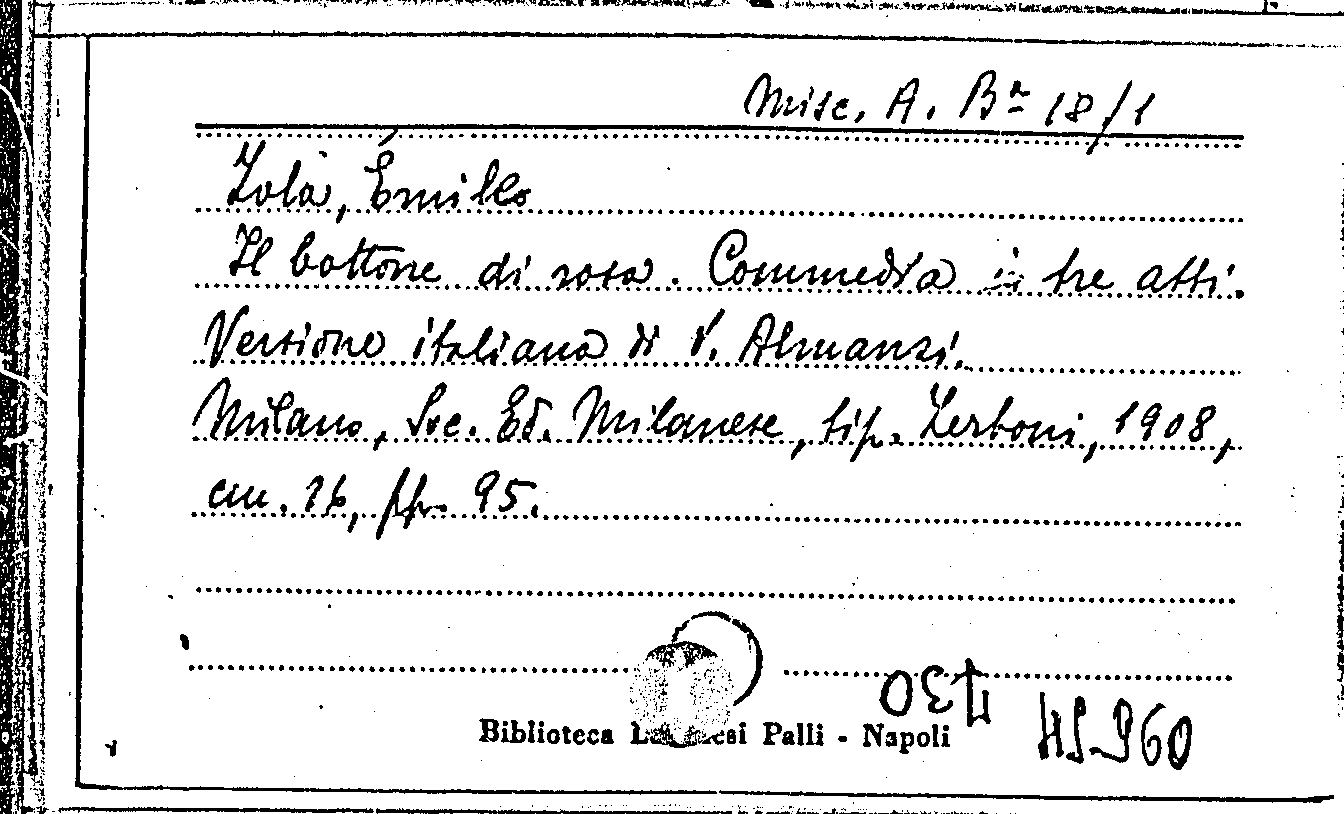 Misc. A. Bª 18/1
Zola, Émile
Il bottone di rosa. Commedia in tre atti.
Versione italiana di V. Almanzi.
Milano, Soc. Ed. Milanese, tip. Zerboni, 1908,
cm. 16, pp. 95.
Biblioteca Palli - Napoli